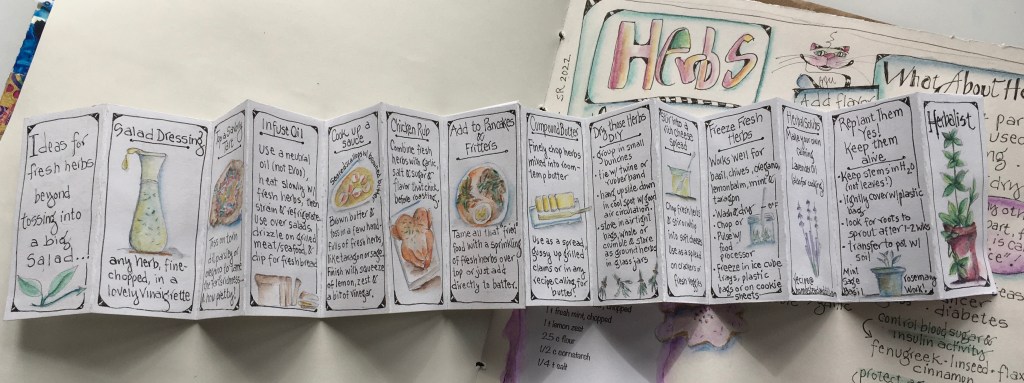 Ideas for
fresh herbs
beyond
tossing into
a big
Salad...!
Salad Dressing
any herb, fine-
chopped, in a
lovely Vinaigrette
Infuse Oil
Use a neutral
oil (not EVOO)
heat slowly w/
fresh herbs, then
strain & refrigerate.
Use over salads,
drizzle on grilled
meat/seafood, &
dip for fresh bread
Cook up a
sauce
Brown butter &
toss in a few hand-
fuls of fresh herbs
like tarragon or sage.
Finish with squeeze
of lemon, zest &
a bit of vinegar.
Chicken Rub
Combine fresh
herbs with garlic,
salt & sugar &
flavor that chick
before roasting.
Add to Pancakes
& Fritters
Tame all that fried
food with a sprinkling
of fresh herbs over
top or just add
directly to batter.
Compound Butter
Finely chop herbs
mixed into room-
temp butter
Use as a spread,
glossy up grilled
clams or in any
recipe calling for
butter!
Dry those Herbs
DIY
group in small
bunches
tie w/ twine or
rubber band
hang upside-down
in cool spot w/ good
air circulation
store in airtight
bags, whole or
crumble & store
as ground herbs
in glass jars
Stir into a
rich cheese
spread
Chop fresh herbs
& stir
into soft cheeses
use as a spread
on crackers or
fresh veggies
Freeze Fresh
Herbs
Works well for
basil, chives, oregano,
lemon balm, mint &
tarragon
Wash & dry
Chop or
Pulse w/
food
processor
Freeze in ice cube
trays, plastic
bags or on cookie
sheets
Herbal Salts
Make your own
Lavender
Replant Them
Yes!
Keep them
alive
Keep stems in H2O
(not leaves!)
lightly cover w/ plastic
bag
look for roots to
sprout after 1-2 wks
transfer to pot w/
soil
Mint
Sage
Basil
rosemary
work!
Herbalist
SR 2022
Herbs
Add flavor
What About He
1 t fresh mint, chopped
1 t lemon zest
2.5 c flour
1/2 c cornstarch
1/4 t salt
diabetes
control blood sugar &
insulin activity
fenugreek · linseed · flax
cinnamon